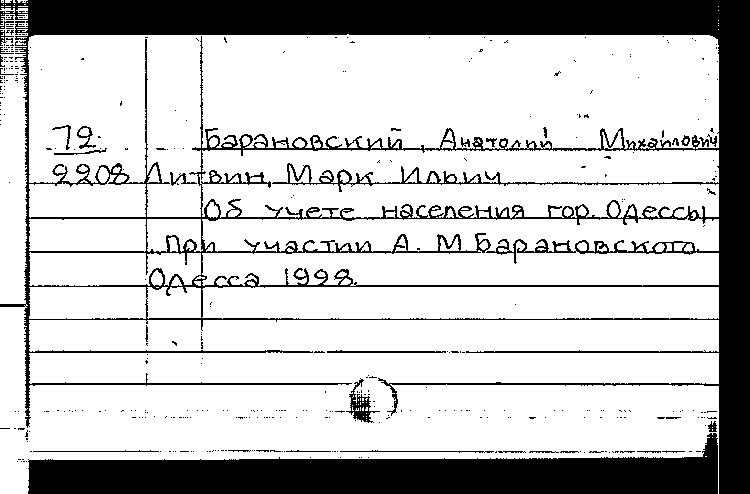 72 Барановский, Анатолий Михайлович
2208 Литвин, Марк Ильич
Об учете населения гор. Одессы
..При участии А. М Барановского.
Одесса 1998.